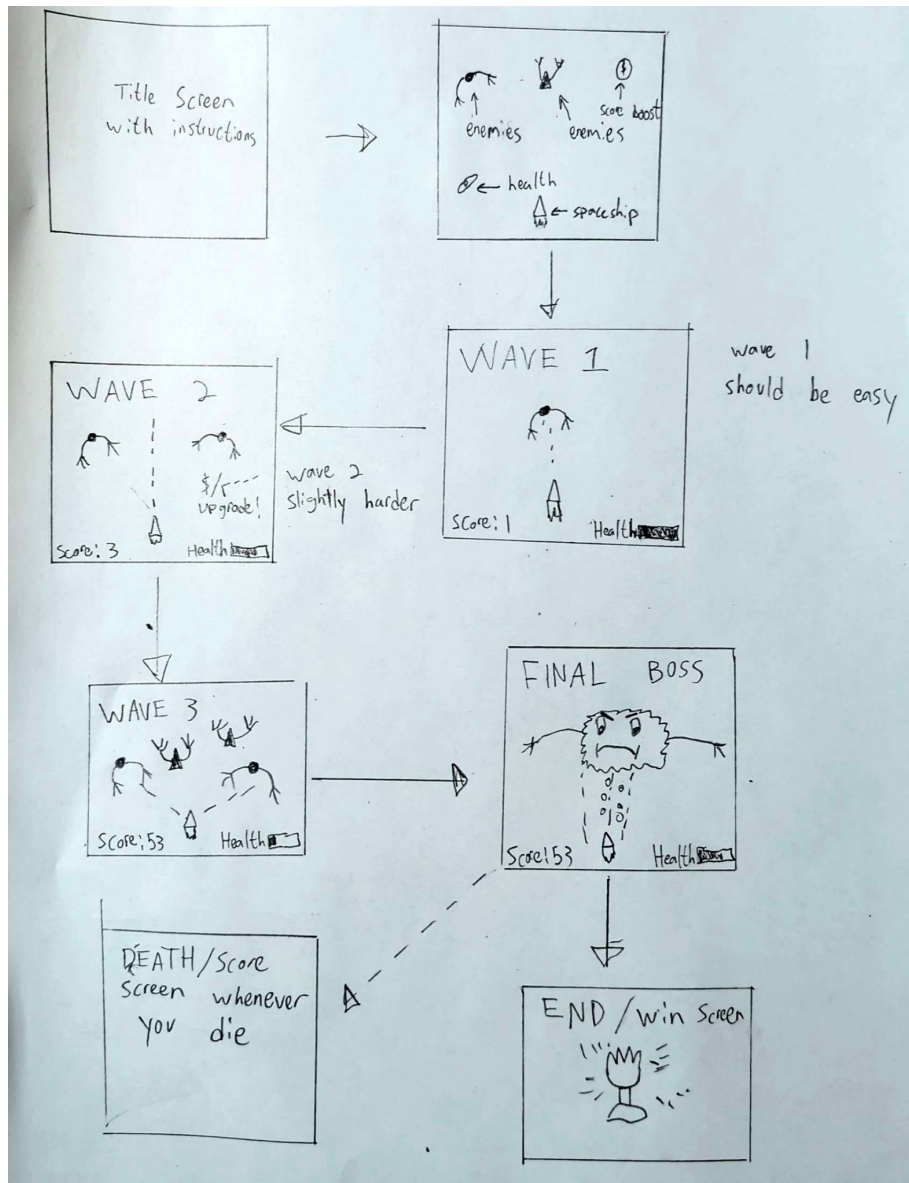 Title Screen
with instructions
enemies
enemies
score boost
health
spaceship
WAVE 1
Score: 1
Health
wave 1
should be easy
WAVE 2
upgrade!
Score: 3
Health
wave 2
slightly harder
WAVE 3
Score: 53
Health
FINAL BOSS
Score: 53
Health
DEATH/Score
Screen whenever
you die
END/win screen